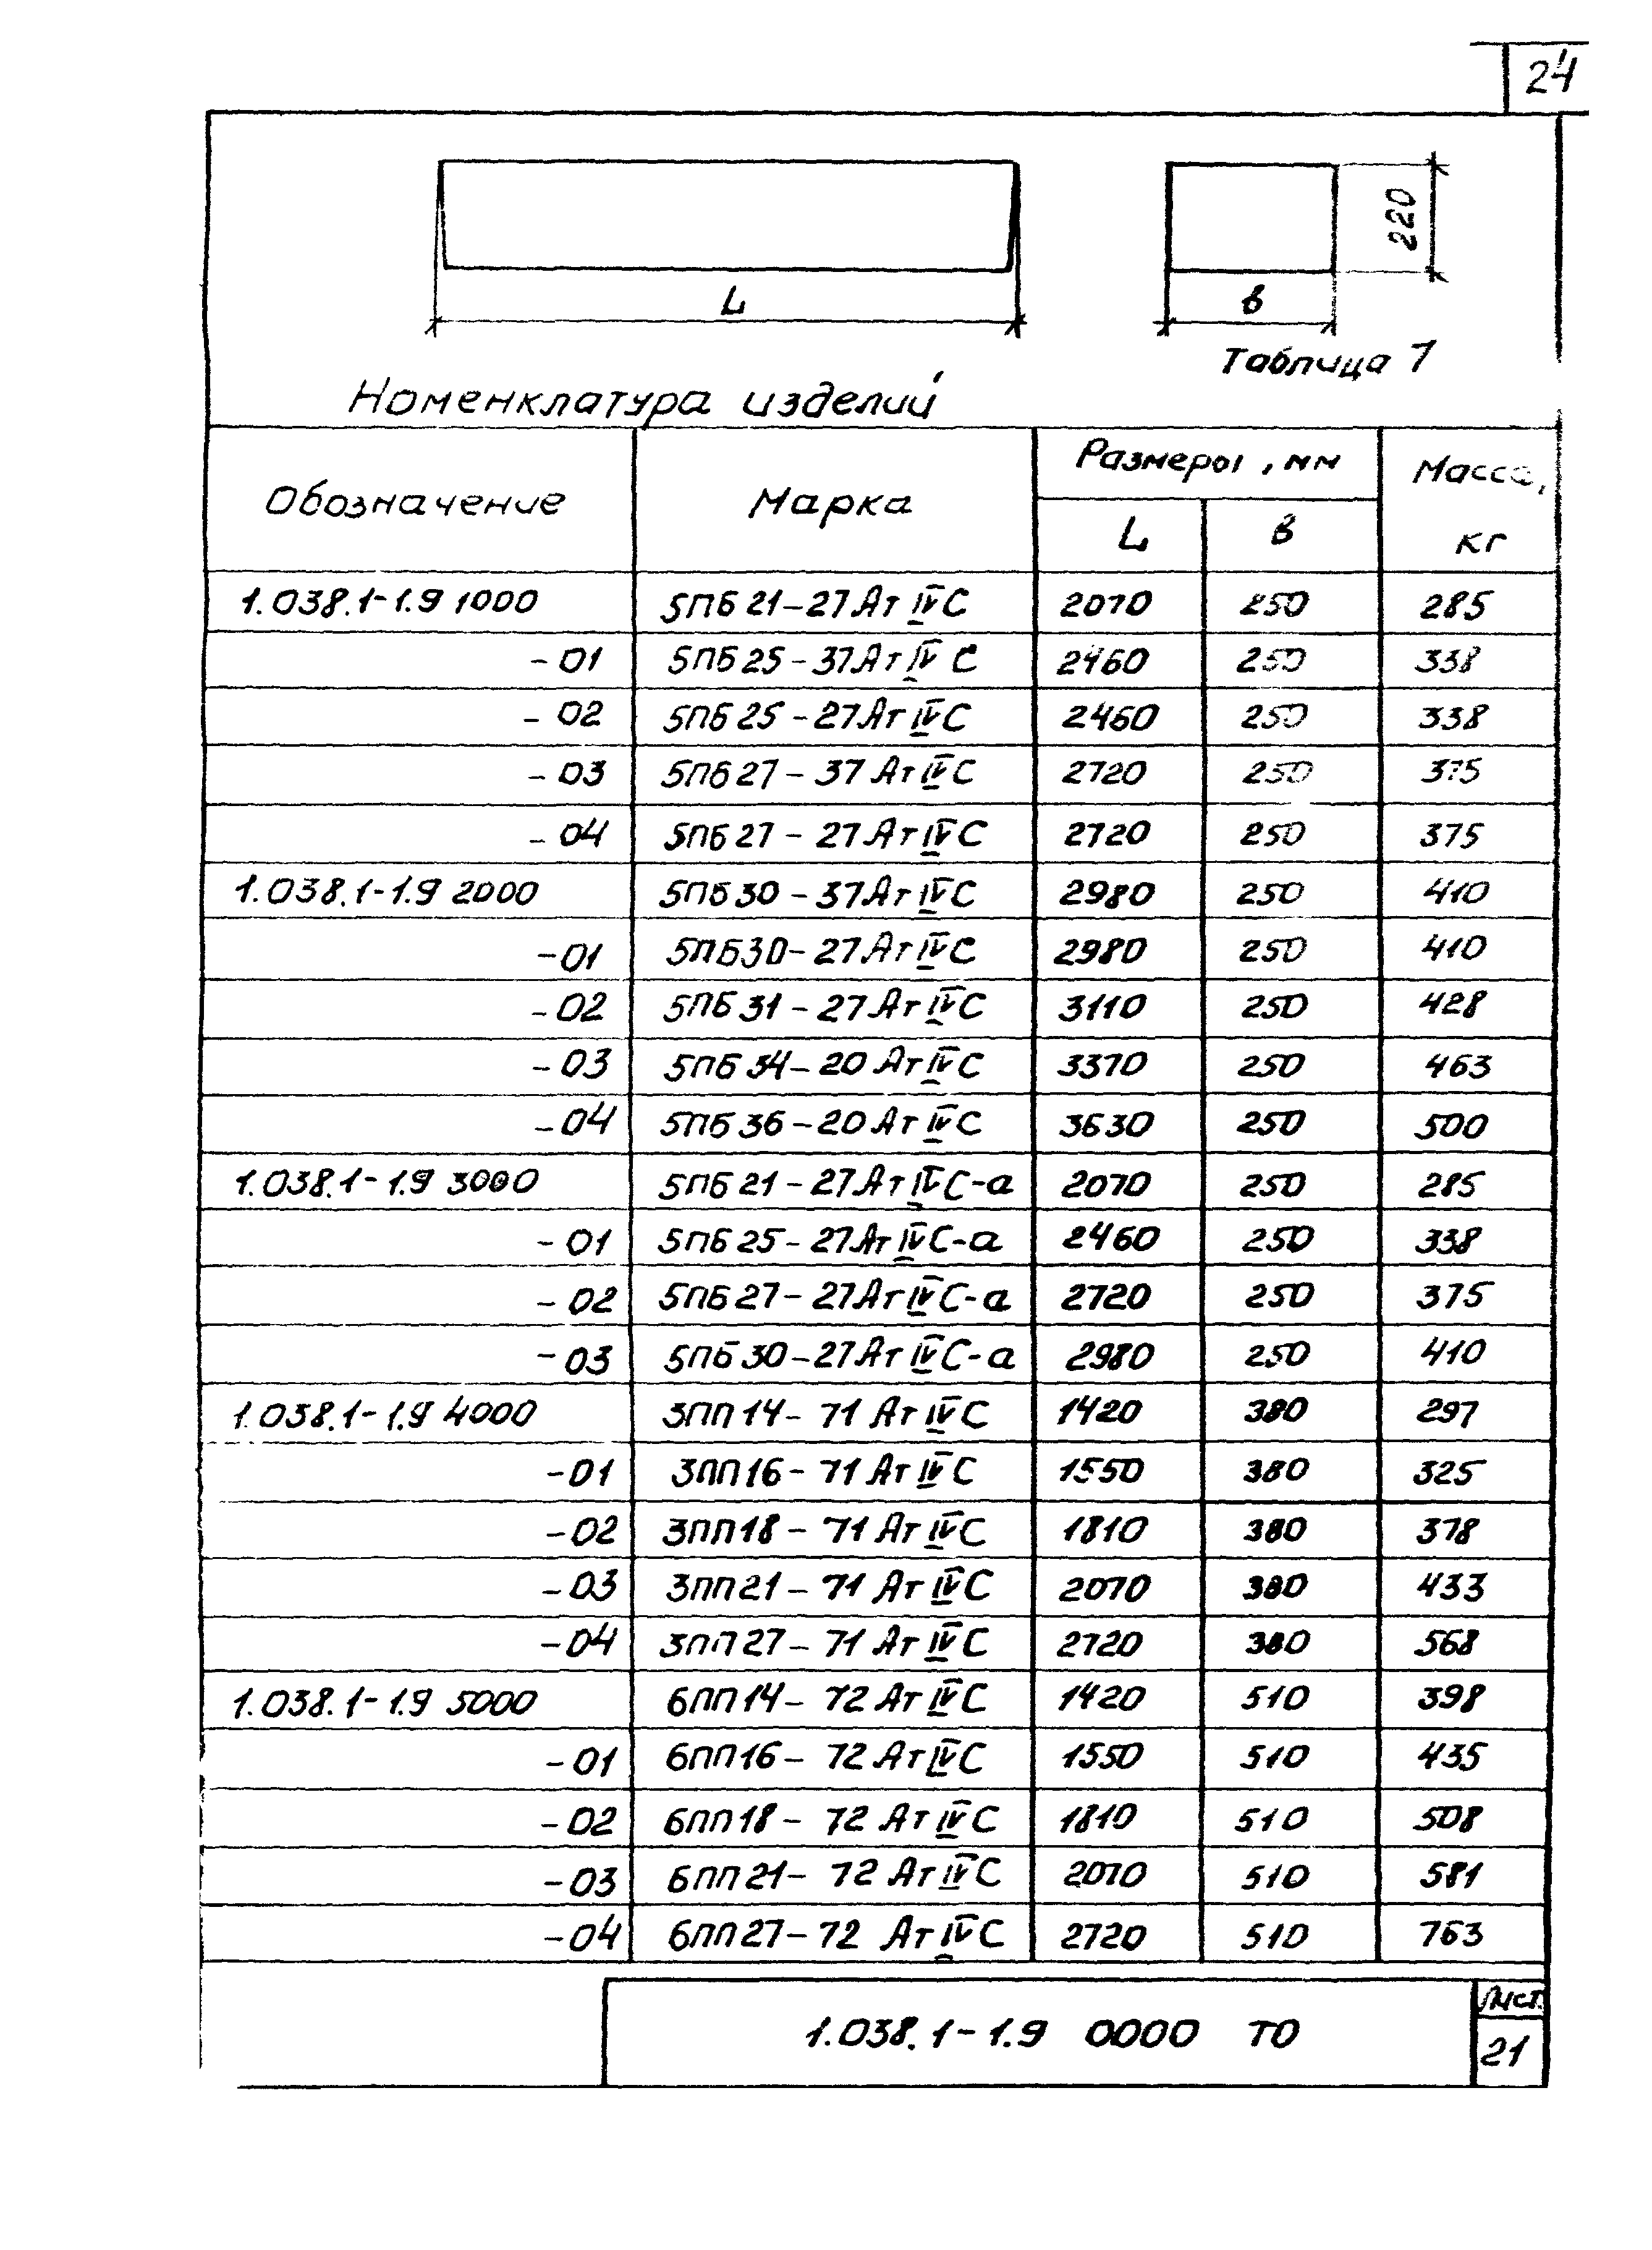 24
220
L
в
Таблица 7
Номенклатура изделий
Обозначение Марка Размеры, мм Масса, кг
L в
1.038.1-1.9 1000 5ПБ21-27АтIVС 2070 250 285
-01 5ПБ25-37АтIVС 2460 250 338
-02 5ПБ25-27АтIVС 2460 250 338
-03 5ПБ27-37АтIVС 2720 250 375
-04 5ПБ27-27АтIVС 2720 250 375
1.038.1-1.9 2000 5ПБ30-37АтIVС 2980 250 410
-01 5ПБ30-27АтIVС 2980 250 410
-02 5ПБ31-27АтIVС 3110 250 428
-03 5ПБ34-20АтIVС 3370 250 463
-04 5ПБ36-20АтIVС 3630 250 500
1.038.1-1.9 3000 5ПБ21-27АтIVС-а 2070 250 285
-01 5ПБ25-27АтIVС-а 2460 250 338
-02 5ПБ27-27АтIVС-а 2720 250 375
-03 5ПБ30-27АтIVС-а 2980 250 410
1.038.1-1.9 4000 3ПП14-71АтIVС 1420 380 297
-01 3ПП16-71АтIVС 1550 380 325
-02 3ПП18-71АтIVС 1810 380 378
-03 3ПП21-71АтIVС 2070 380 433
-04 3ПП27-71АтIVС 2720 380 568
1.038.1-1.9 5000 6ПП14-72АтIVС 1420 510 398
-01 6ПП16-72АтIVС 1550 510 435
-02 6ПП18-72АтIVС 1810 510 508
-03 6ПП21-72АтIVС 2070 510 581
-04 6ПП27-72АтIVС 2720 510 763
1.038.1-1.9 0000 ТО
Лист
21